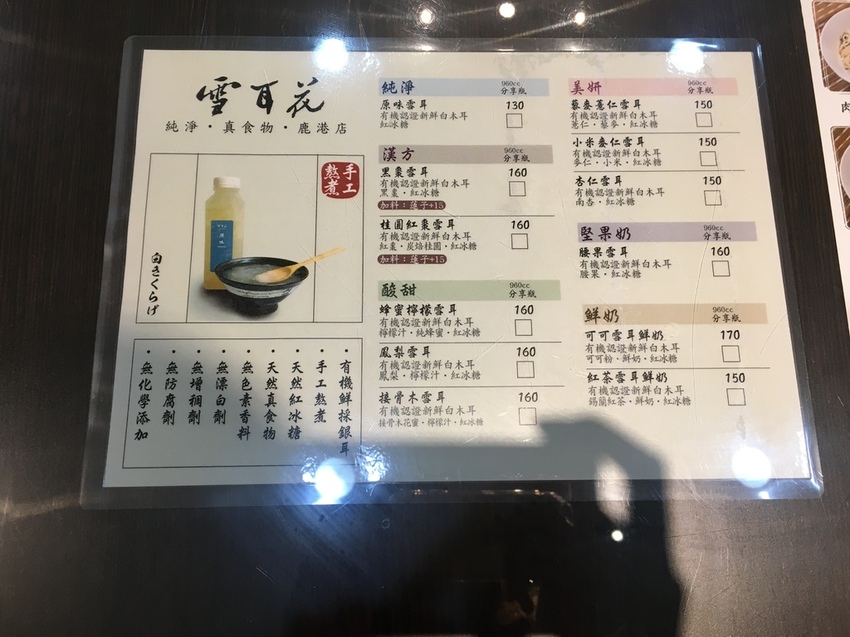 雪耳花
純淨·真食物·鹿港店
手工
熬煮
白きくらげ
·有機鮮採銀耳
·手工熬煮
·天然紅冰糖
·天然真食物
·無色素香料
·無漂白劑
·無增稠劑
·無防腐劑
·無化學添加
純淨 960cc 分享瓶
原味雪耳 130
有機認證新鮮白木耳
紅冰糖
漢方 960cc 分享瓶
黑棗雪耳 160
有機認證新鮮白木耳
黑棗·紅冰糖
加料：蓮子+15
桂圓紅棗雪耳 160
有機認證新鮮白木耳
紅棗·炭焙桂圓·紅冰糖
加料：蓮子+15
酸甜 960cc 分享瓶
蜂蜜檸檬雪耳 160
有機認證新鮮白木耳
檸檬汁·純蜂蜜·紅冰糖
鳳梨雪耳 160
有機認證新鮮白木耳
鳳梨·檸檬汁·紅冰糖
接骨木雪耳 160
有機認證新鮮白木耳
接骨木花蜜·檸檬汁·紅冰糖
美妍 960cc 分享瓶
藜麥薏仁雪耳 150
有機認證新鮮白木耳
薏仁·藜麥·紅冰糖
小米麥仁雪耳 150
有機認證新鮮白木耳
麥仁·小米·紅冰糖
杏仁雪耳 150
有機認證新鮮白木耳
南杏·紅冰糖
堅果奶 960cc 分享瓶
腰果雪耳 160
有機認證新鮮白木耳
腰果·紅冰糖
鮮奶 960cc 分享瓶
可可雪耳鮮奶 170
有機認證新鮮白木耳
可可粉·鮮奶·紅冰糖
紅茶雪耳鮮奶 150
有機認證新鮮白木耳
錫蘭紅茶·鮮奶·紅冰糖
肉